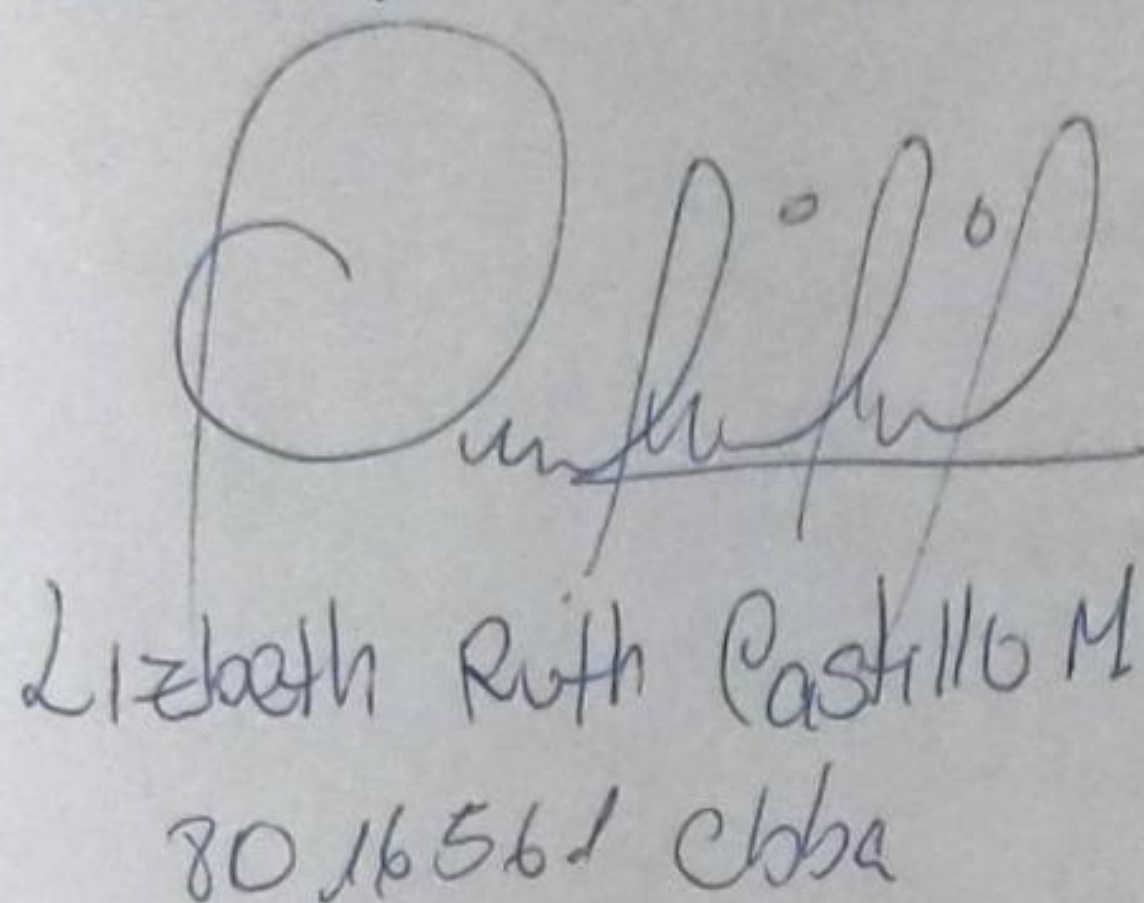 Lizbeth Ruth Castillo M
8016561 Cbba